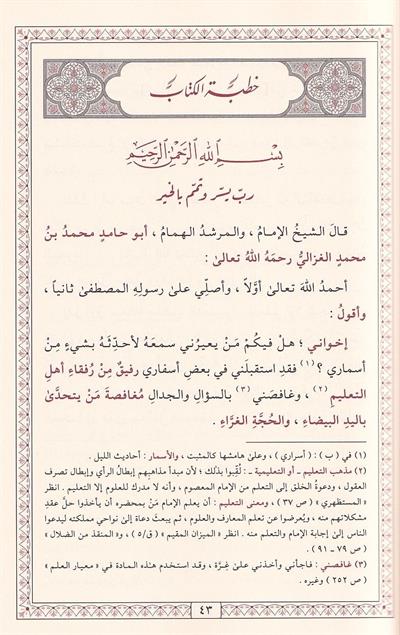 خطبة الكتاب
بِسْمِ اللهِ الرَّحْمٰنِ الرَّحِيْمِ
ربّ يسّر وتمّم بالخير
قالَ الشيخُ الإمامُ ، والمرشدُ الهمامُ ، أبو حامدٍ محمدُ بنُ
محمدٍ الغزاليُّ رحمَهُ اللهُ تعالىٰ :
أحمدُ اللهَ تعالىٰ أوَّلاً ، وأصلِّي علىٰ رسولِهِ المصطفىٰ ثانياً ،
وأقولُ :
إخواني ؛ هلْ فيكُمْ مَنْ يعيرُني سمعَهُ لأحدِّثَهُ بشيءٍ مِنْ
أسماري ؟ (١) فقدِ استقبلَني في بعضِ أسفاري رفيقٌ مِنْ رُفقاءِ أهلِ
التعليمِ (٢) ، وغافصَني (٣) بالسؤالِ والجدالِ مُغافصةَ مَنْ يتحدَّىٰ
باليدِ البيضاءِ ، والحُجَّةِ الغرَّاءِ .
(١) في ( ب ) : ( أسراري ) ، وعلىٰ هامشها كالمثبت ، والأسمار : أحاديث الليل .
(٢) مذهب التعليم ـ أو التعليمية ـ : لُقِّبوا بذلك ؛ لأن مبدأ مذاهبهم إبطالُ الرأي وإبطال تصرف
العقول ، ودعوةُ الخلق إلى التعلم من الإمام المعصوم ، وأنه لا مدرك للعلوم إلا التعليم . انظر
« المستظهري » ( ص ٣٧ ) ، ومعنى التعليم : أن يعلم الإمام مَنْ بمحضره أن يأخذوا حلَّ عقدِ
مشكلاتهم منه ، ويُعرضوا عن تعلم المعارف والعلوم ، ثم يبعث دعاة إلىٰ نواحي مملكته ليدعوا
الناس إلىٰ إجابة الإمام والتعلم منه . انظر « الميزان المقيم » ( ق/٥ ) ، و« المنقذ من الضلال »
( ص ٧٩ ـ ٩١ ) .
(٣) غافصني : فاجأني وأخذني علىٰ غِرَّة ، وقد استخدم هٰذه المادة في « معيار العلم »
( ص ٢٥٢ ) وغيره .
٤٣